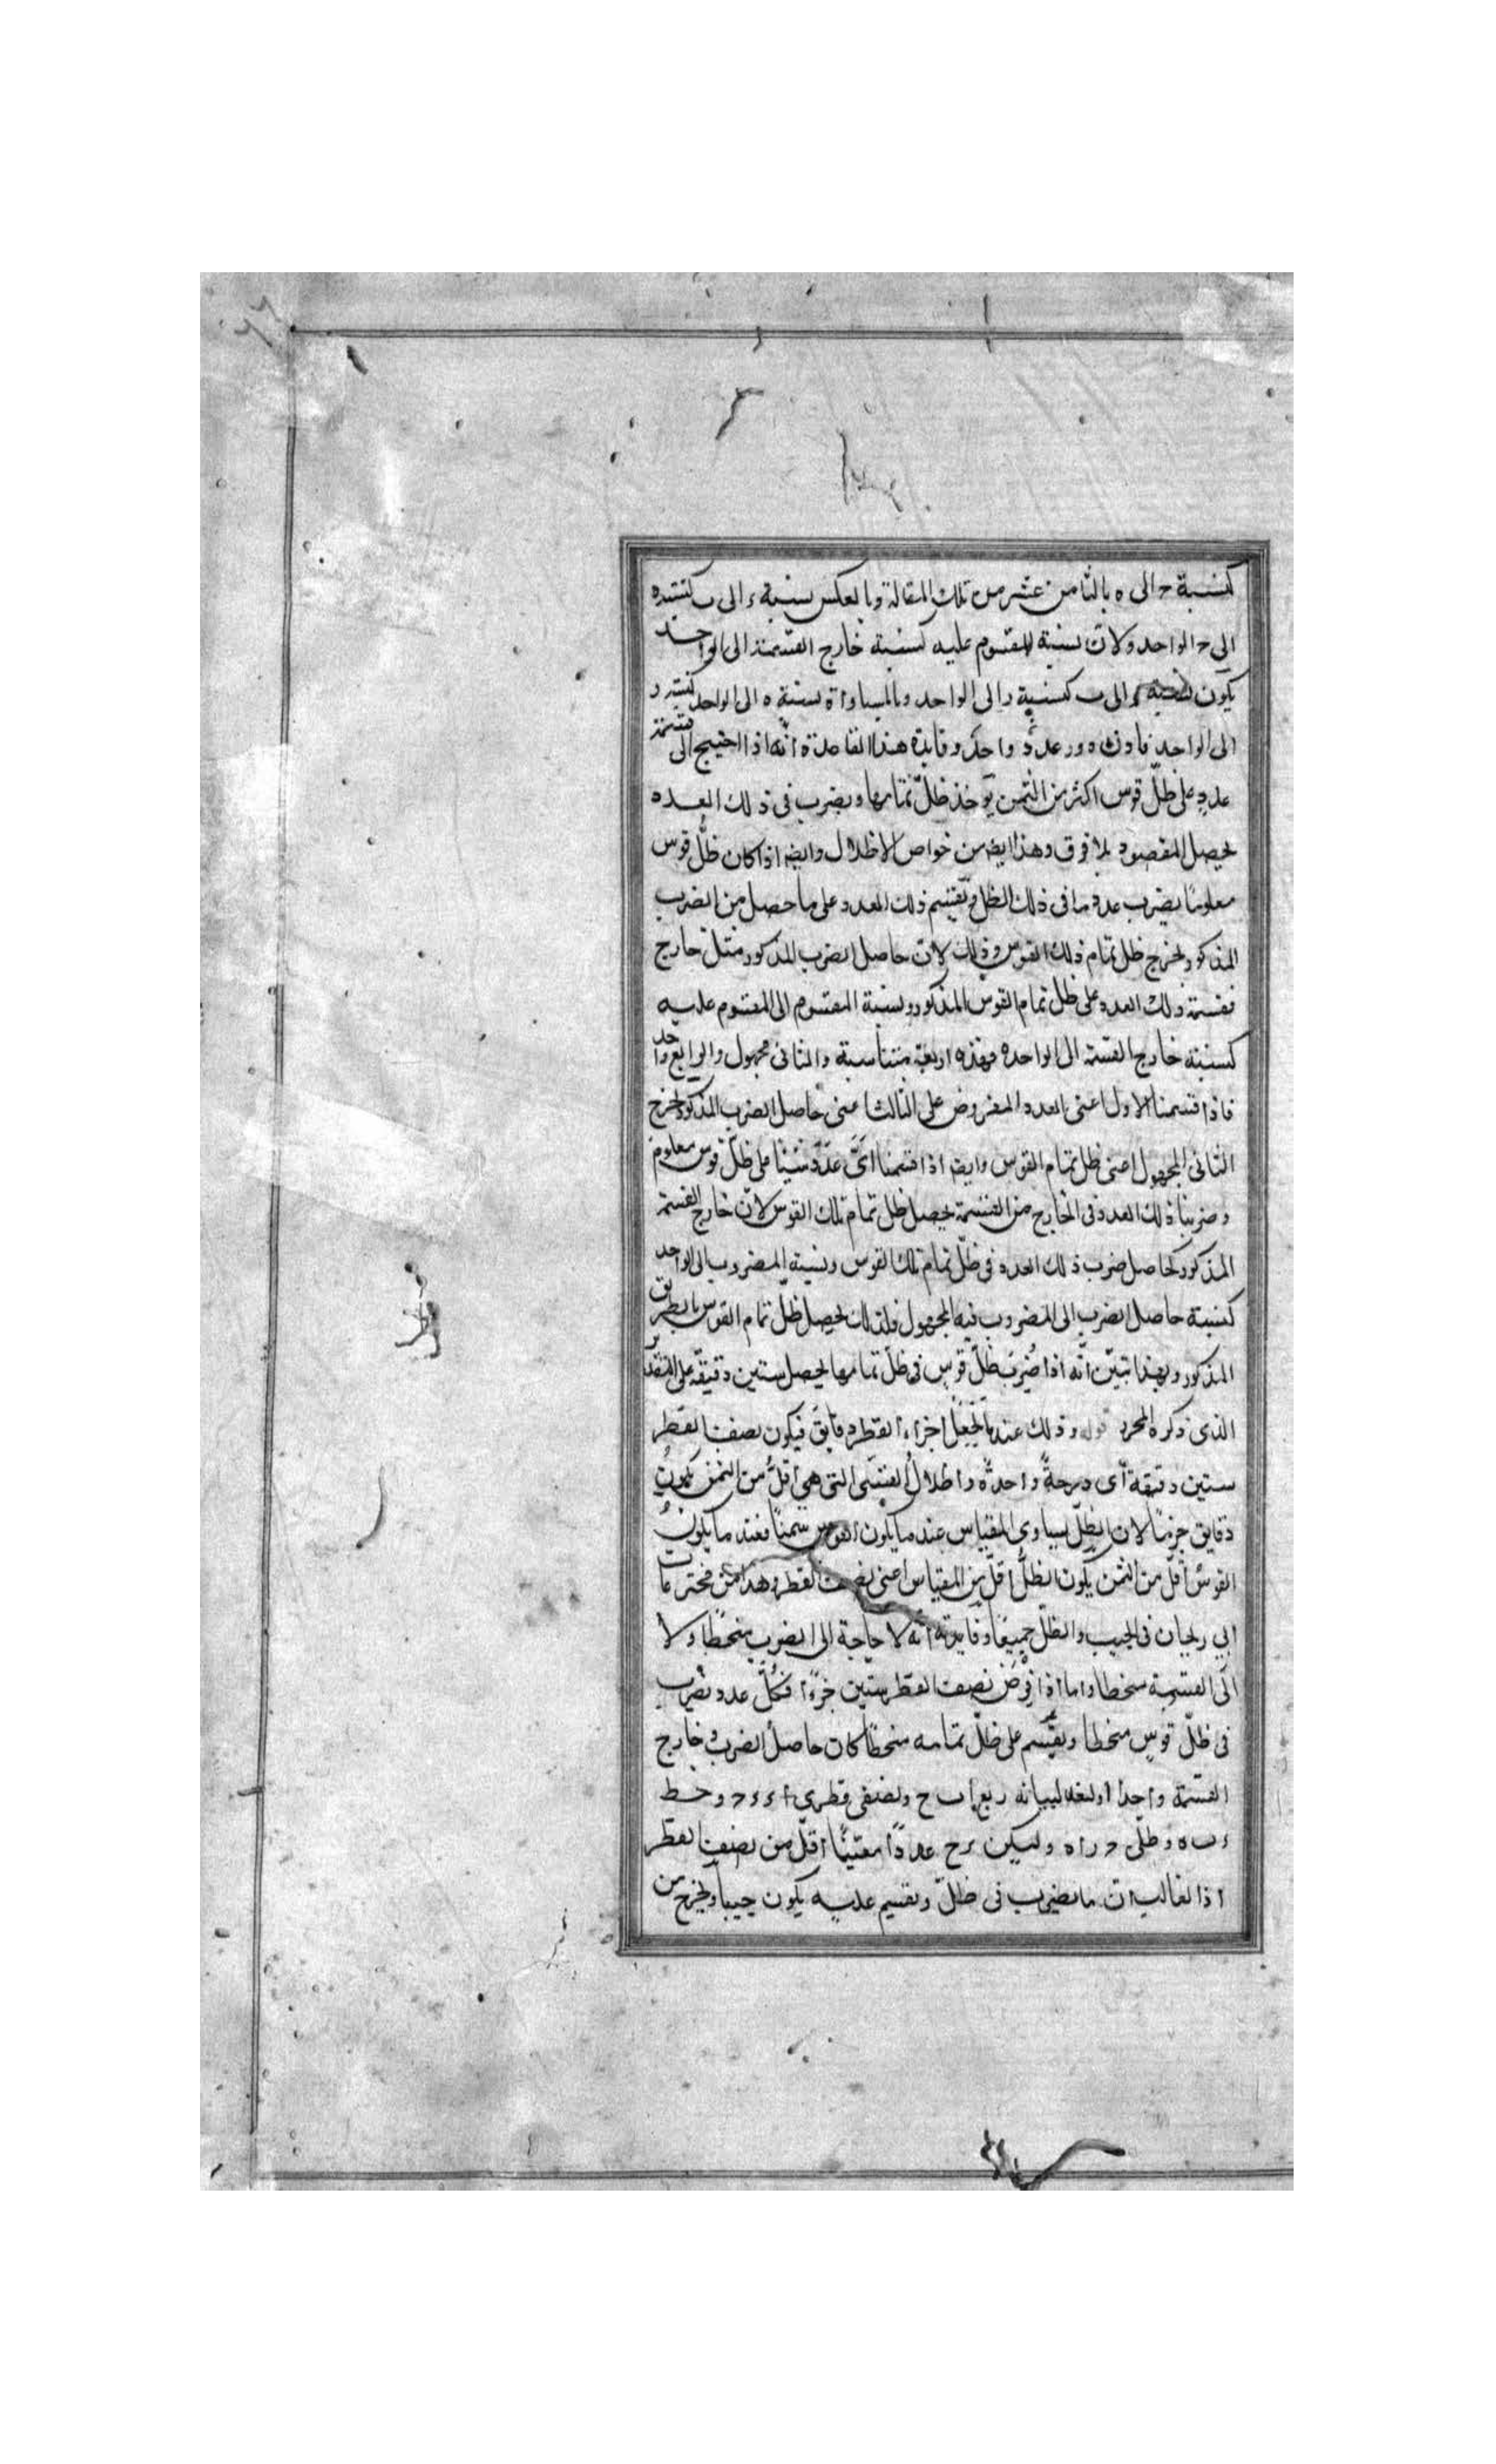 كنسبة ح الى ه بالثامن عشر من تلك المقالة وبالعكس نسبة ء الى ب كنسبة ه
الى ح الواحد ولان نسبة المقسوم عليه كنسبة خارج القسمة الى الواحد
يكون نسبة ء الى ب كنسبة ر الى الواحد وبالمساواة نسبة ه الى الواحد كنسبة ر
الى الواحد فاذن ه ور عددٌ واحدٌ وفايدة هذا القاعدة أنّه اذا احتيج الى قسمة
عددٍ على ظلّ قوس اكثر من الثمن يؤخذ ظلّ تمامها ويضرب فى ذلك العدد
يحصل المقصود بلا فرق وهذا ايضا من خواص الاظلال وايضا اذا كان ظلّ قوس
معلومًا يضرب عدد ما فى ذلك الظل ويقسم ذلك العدد على ما حصل من الضرب
المذكور يخرج ظل تمام ذلك القوس وذلك لانّ حاصل الضرب المذكور مثل خارج
قسمة ذلك العدد على ظل تمام القوس المذكور ونسبة المقسوم الى المقسوم عليه
كنسبة خارج القسمة الى الواحد فهذه اربعة متناسبة والثانى مجهول والرابع واحد
فاذا قسمنا الاول اعنى العدد المفروض على الثالث اعنى حاصل الضرب المذكور يخرج
الثانى المجهول اعنى ظل تمام القوس وايضا اذا قسمنا اىّ عدد شينا على ظلّ قوس معلوم
وضربنا ذلك العدد فى الخارج من القسمة يحصل ظل تمام تلك القوس لانّ خارج القسمة
المذكور كحاصل ضرب ذلك العدد فى ظلّ تمام تلك القوس ونسبة المضروب الى الواحد
كنسبة حاصل الضرب الى المضروب فيه المجهول فلذلك يحصل ظلّ تمام القوس بالطريق
المذكور وبهذا تبيّن أنّه اذا ضُرِبَ ظلّ قوسٍ فى ظلّ تمامها يحصل ستين دقيقة على التقدير
الذى ذكره المحرر قوله وذلك عند ما تجعل اجزاء القطر دقايق فيكون نصف القطر
ستين دقيقة أى درجةً واحدةً واظلالُ القسىّ التى هى أقلُّ من الثمن يكون
دقايق جزمًا لان الظلّ يساوى المقياس عند ما يكون القوس ثمنًا فعند ما يكون
القوسُ أقلّ من الثمن يكون الظلُّ أقلّ من المقياس اعنى نصف القطر وهذا من مخترعات
ابي ريحان فى الجيب والظلّ جميعًا وفايدته أنّه لا حاجة الى الضرب منحطًا ولا
الى القسمة منحطا واما اذا فُرِضَ نصف القطر ستين جُزءًا فكلُّ عدد يضرب
فى ظلّ قوسٍ منحطا ويقسم على ظلّ تمامه منحطا كان حاصل الضرب وخارج
القسمة واحدا ولنعد لبيانه ربع ا ب ح ونصفى قطرى ا ء ء ح وخط
ء ب ه وظلّى ح ر ا ه وليكن رح عددًا معيّنًا أقلّ من نصف القطر
اذ الغالب انّ ما يضرب فى ظلّ ويقسم عليه يكون جيبا ويخرج من